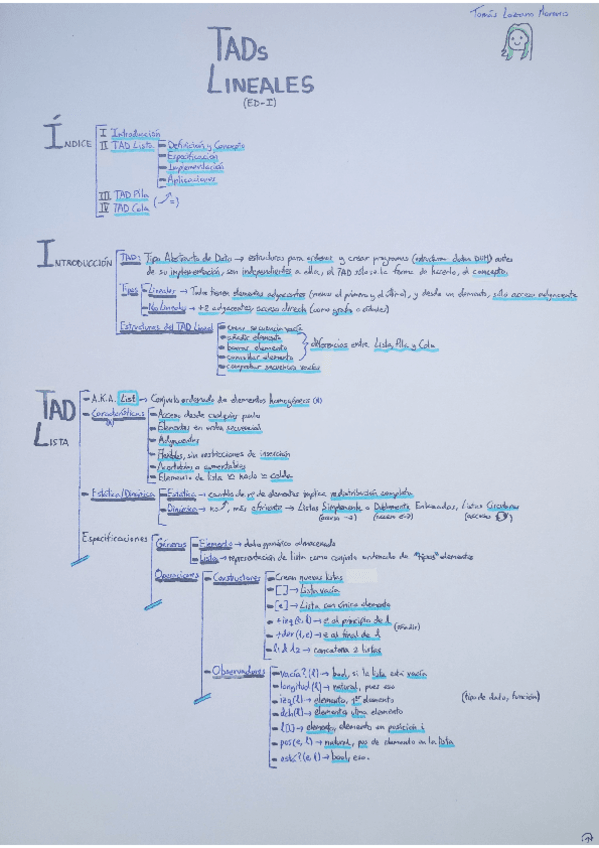 Tomás Lozano
TADs
LINEALES
(ED-I)
ÍNDICE
I Introducción
II TAD Lista
Definición y Concepto
Especificación
Implementación
Aplicaciones
III TAD Pila
IV TAD Cola
INTRODUCCIÓN
TAD: Tipo Abstracto de Dato → estructuras para ordenar y crear programas (estructuran datos) antes
de su implementación, son independientes a ella, el TAD sólo es la forma de hacerlo, el concepto.
Tipos
Lineales → Todos tienen elementos adyacentes (menos el primero y el último), y desde un elemento, sólo acceso adyacente
No Lineales → +2 adyacentes, acceso directo (como grafos o árboles)
Estructuras del TAD Lineal
crear secuencia vacía
añadir elemento
borrar elemento
consultar elemento
comprobar secuencia vacía
diferencias entre Lista, Pila y Cola
TAD LISTA
A.K.A. List → Conjunto ordenado de elementos homogéneos
Características
Acceso desde cualquier punto
Elementos en vista secuencial
Adyacentes
Flexibles, sin restricciones de inserción
Acortables o aumentables
Elementos de lista
Estática/Dinámica
Estática → cambio de nº de elementos implica redistribución completa
Dinámica → no, más eficiente → Listas Simplemente o Doblemente Enlazadas, Listas Circulares
Especificaciones
Géneros
Elemento → dato genérico almacenado
Lista → representación de lista como conjunto ordenado de "tipos" elementos
Operaciones
Constructores
Crean nuevas listas
[] → Lista vacía
[e] → Lista con único elemento
+izq(e, l) → e al principio de l
+der(l, e) → e al final de l
(añadir)
l1 & l2 → concatena 2 listas
Observadores
vacía?(l) → bool, si la lista está vacía
longitud(l) → natural, pues eso
izq(l) → elemento, 1er elemento
dch(l) → elemento último elemento
l[i] → elemento, elemento en posición i
pos(e, l) → natural, pos de elemento en la lista
está?(e, l) → bool, eso.
(tipo de dato, función)